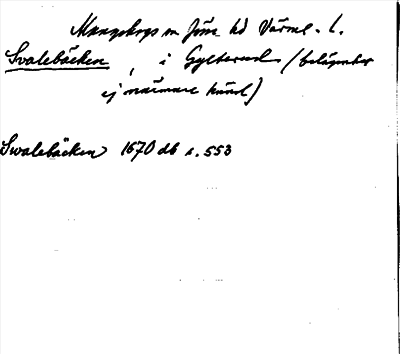 Mangskogs sn Jösse hd Värml. l.
Svalebäcken, i Gylterud (belägenhet
ej närmare känd)
Svalebäcken 1670 db s. 553